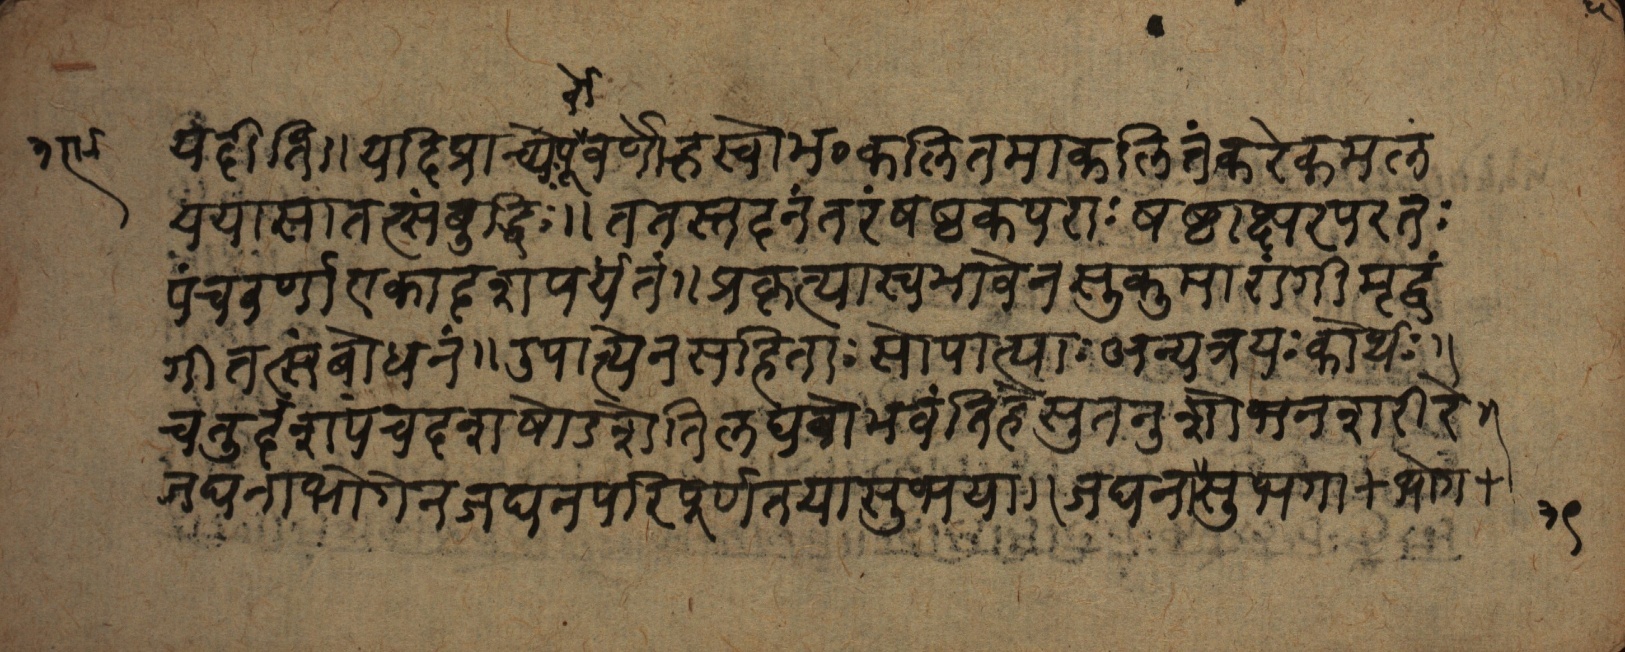 र्वो
यदीति॥ यदि प्राच्यःपूर्ववर्णोह्रस्वोभ० कलितमाकलितंकरेकमलं
ययासातत्संबुद्धिः॥ ततस्तदनंतरंषष्ठकपराः षष्ठाक्षरपरतः
पंचवर्णाएकादशपर्यंतं॥ प्रकृत्यास्वभावेनसुकुमारांगीमृद्वं
गीतत्संबोधनं॥ उपान्त्येनसहिताः सोपान्त्याः अन्यत्रयः कोर्थः॥
चतुर्दशपंचदशषोडशेतिलघवोभवंतिहेसुतनुशोभनशरीरे॥
जघनाभोगेनजघनपरिपूर्णतयासुभया॥ जघनसुभगा+भोग+
३९